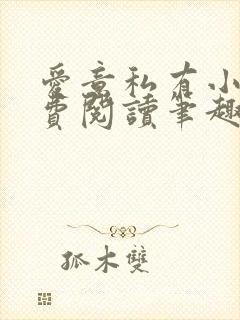 愛意私有小
費閱讀筆趣
孤木雙